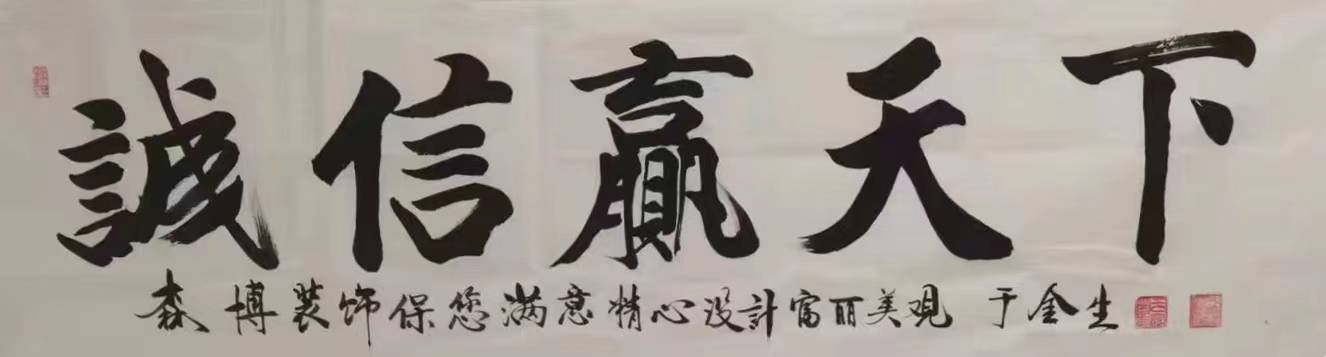 誠信贏天下
森博装饰保您满意精心设計富丽美观 于金生